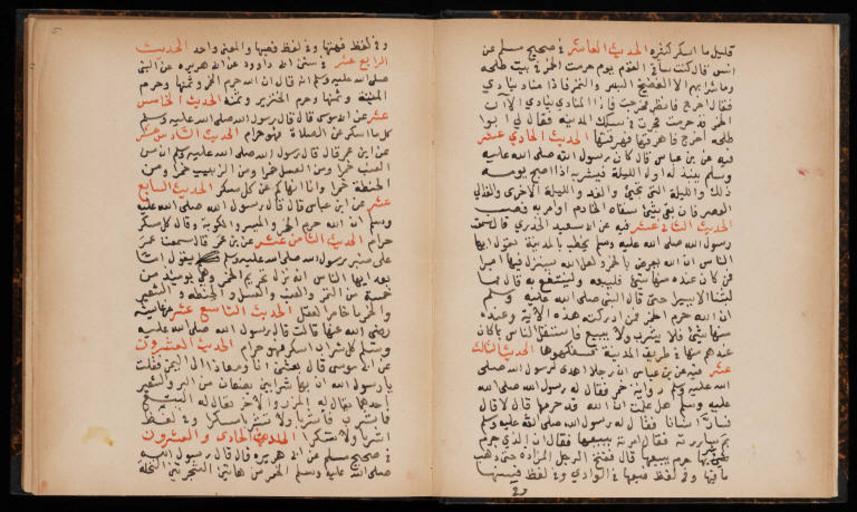 قليل ما اسكر كثيره الحديث العاشر في صحيح مسلم عن
انس قال كنت ساقي القوم يوم حرمت الخمر في بيت ابي طلحه
وما شرابهم الا الفضيخ البسر والتمر فاذا مناد ينادي
فقال اخرج فانظر فخرجت فاذا المنادي ينادي الا ان
الخمر قد حرمت فجرت في سكك المدينه فقال لي ابوا
طلحه اخرج فاهرقها فهرقتها الحديث الحادي عشر
فيه عن بن عباس قال كان رسول الله صلى الله عليه
وسلم ينبذ له اول الليلة فيشربه اذا اصبح يومه
ذلك والليلة التي تجيئ والغد والليلة الاخرى والغد الى
العصر فان بقي شيئ سقاه الخادم او امر به فصب
الحديث الثاني عشر فيه عن ابي سعيد الخدري قال سمعت
رسول الله صلى الله عليه وسلم يخطب بالمدينة يقول ايها
الناس ان الله يعرض بالخمر ولعل الله سينزل فيها امرا
فمن كان عنده منها شيئ فليبعه ولينتفع به قال فما
لبثنا الا يسيرا حتى قال النبي صلى الله عليه وسلم
ان الله حرم الخمر فمن ادركته هذه الاية وعنده
منها شيئ فلا يشرب ولا يبيع فاستقبل الناس بما كان
عندهم منها في طريق المدينة فسفكوها الحديث الثالث
عشر فيه عن بن عباس ان رجلا اهدى لرسول الله صلى
الله عليه وسلم راوية خمر فقال له رسول الله صلى الله
عليه وسلم هل علمت ان الله قد حرمها قال لا قال
فسار انسانا فقال له رسول الله صلى الله عليه وسلم
بم ساررته فقال امرته ببيعها فقال ان الذي حرم
شربها حرم بيعها قال ففتح الرجل المزاده حتى ذهب
ما فيها وفي لفظ فبعها في الوادي وفي لفظ
وفي
وفي لفظ فهتها وفي لفظ فصبها والمعنى واحد الحديث
الرابع عشر في سنن ابي داوود عن ابي هريره عن النبي
صلى الله عليه وسلم انه قال ان الله حرم الخمر وثمنها وحرم
الميتة وثمنها وحرم الخنزير وثمنه الحديث الخامس
عشر عن ابي موسى قال قال رسول الله صلى الله عليه وسلم
كل ما اسكر عن الصلاة فهو حرام الحديث السادس عشر
عن ابن عمر قال قال رسول الله صلى الله عليه وسلم ان من
العنب خمرا ومن العسل خمرا ومن الزبيب خمرا ومن
الحنطة خمرا وانا انهاكم عن كل مسكر الحديث السابع
عشر عن ابن عباس قال قال رسول الله صلى الله عليه
وسلم ان الله حرم الخمر والميسر والكوبة وقال كل مسكر
حرام الحديث الثامن عشر عن بن عمر قال سمعت عمر
على منبر رسول الله صلى الله عليه وسلم يقول اما
بعد ايها الناس انه نزل تحريم الخمر وهي يومئذ من
خمسة من التمر والعنب والعسل والحنطه والشعير
والخمر ما خامر العقل الحديث التاسع عشر عن عائشة
رضي الله عنها قالت قال رسول الله صلى الله عليه
وسلم كل شراب اسكر فهو حرام الحديث العشرون
عن ابي موسى قال بعثني انا ومعاذا الى اليمن فقلت
يا رسول الله ان بها شرابين يصنعان من البر والشعير
احدهما يقال له المزر والاخر يقال له البتع
فاشرب قال اشربا ولا تشربا مسكرا وفي لفظ
اشربا ولا تسكرا الحديث الحادى والعشرون
في صحيح مسلم عن ابي هريره قال قال رسول الله
صلى الله عليه وسلم الخمر من هاتين الشجرتين النخلة